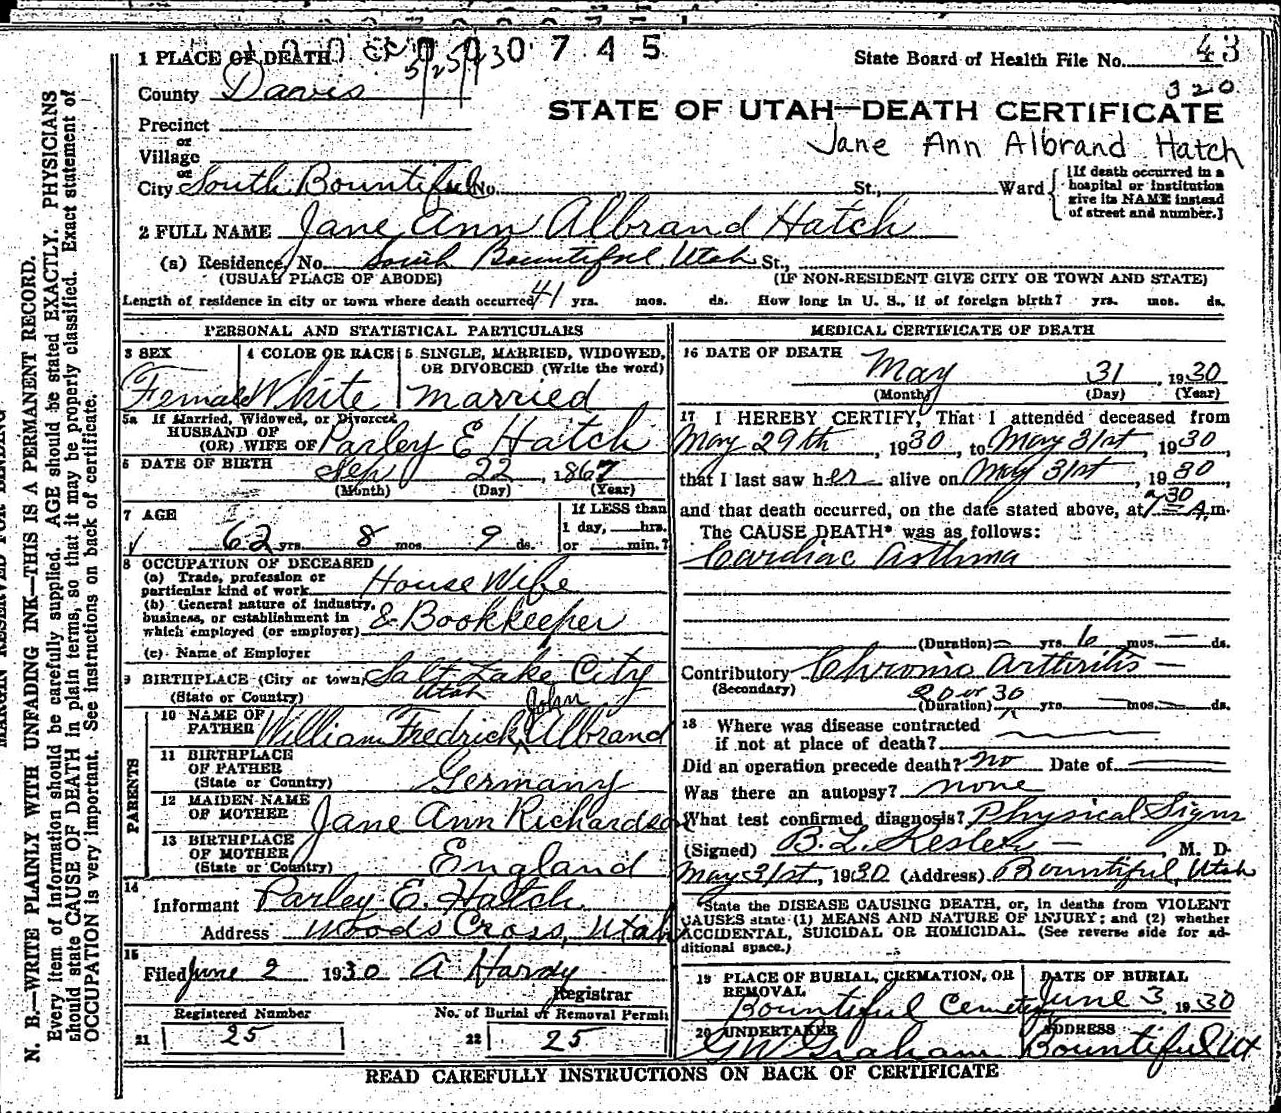 0 0 0 7 4 5
1 PLACE OF DEATH
5/25/30
State Board of Health File No. 43
320
County Davis
STATE OF UTAH—DEATH CERTIFICATE
Precinct
Jane Ann Albrand Hatch
or
Village
or
City South Bountiful No. St., Ward
[If death occurred in a
hospital or institution
give its NAME instead
of street and number.]
2 FULL NAME Jane Ann Albrand Hatch
(a) Residence, No. South Bountiful, Utah St.,
(USUAL PLACE OF ABODE) (IF NON-RESIDENT GIVE CITY OR TOWN AND STATE)
Length of residence in city or town where death occurred 41 yrs. mos. ds. How long in U. S., if of foreign birth? yrs. mos. ds.
PERSONAL AND STATISTICAL PARTICULARS
3 SEX
Female
4 COLOR OR RACE
White
5 SINGLE, MARRIED, WIDOWED,
OR DIVORCED (Write the word)
married
5a If Married, Widowed, or Divorced
HUSBAND OF
(OR) WIFE OF Parley E Hatch
6 DATE OF BIRTH Sep 22, 1867
(Month) (Day) (Year)
7 AGE
62 yrs. 8 mos. 9 ds.
If LESS than
1 day, hrs.
or min.?
8 OCCUPATION OF DECEASED
(a) Trade, profession or
particular kind of work House Wife
(b) General nature of industry,
business, or establishment in
which employed (or employer) & Bookkeeper
(c) Name of Employer
9 BIRTHPLACE (City or town) Salt Lake City
(State or Country) Utah
PARENTS
10 NAME OF
FATHER William Fredrick John Albrand
11 BIRTHPLACE
OF FATHER
(State or Country) Germany
12 MAIDEN NAME
OF MOTHER Jane Ann Richardson
13 BIRTHPLACE
OF MOTHER
(State or Country) England
14
Informant Parley E. Hatch
Address Woods Cross, Utah
15
Filed June 2 1930 A Hardy
Registrar
Registered Number No. of Burial or Removal Permit
21 25 22 25
MEDICAL CERTIFICATE OF DEATH
16 DATE OF DEATH
May 31, 1930
(Month) (Day) (Year)
17 I HEREBY CERTIFY, That I attended deceased from
May 29th, 1930, to May 31st, 1930,
that I last saw her alive on May 31st, 1930
and that death occurred, on the date stated above, at 7 30 A.m.
The CAUSE DEATH* was as follows:
Cardiac asthma
(Duration) — yrs. 6 mos. — ds.
Contributory Chronic arthritis —
(Secondary) 20 or 30
(Duration) yrs. — mos. — ds.
18 Where was disease contracted
if not at place of death?
Did an operation precede death? no Date of
Was there an autopsy? none
What test confirmed diagnosis? Physical Signs
(Signed) B. L. Kesler —, M. D.
May 31st, 1930 (Address) Bountiful, Utah
*State the DISEASE CAUSING DEATH, or, in deaths from VIOLENT
CAUSES state (1) MEANS AND NATURE OF INJURY; and (2) whether
ACCIDENTAL, SUICIDAL OR HOMICIDAL. (See reverse side for ad-
ditional space.)
19 PLACE OF BURIAL, CREMATION, OR
REMOVAL
Bountiful Cemetery
DATE OF BURIAL
June 3, 1930
20 UNDERTAKER
G W Graham
ADDRESS
Bountiful Ut
READ CAREFULLY INSTRUCTIONS ON BACK OF CERTIFICATE
MARGIN RESERVED FOR BINDING
N. B.—WRITE PLAINLY WITH UNFADING INK—THIS IS A PERMANENT RECORD.
Every item of information should be carefully supplied. AGE should be stated EXACTLY. PHYSICIANS
should state CAUSE OF DEATH in plain terms, so that it may be properly classified. Exact statement of
OCCUPATION is very important. See instructions on back of certificate.